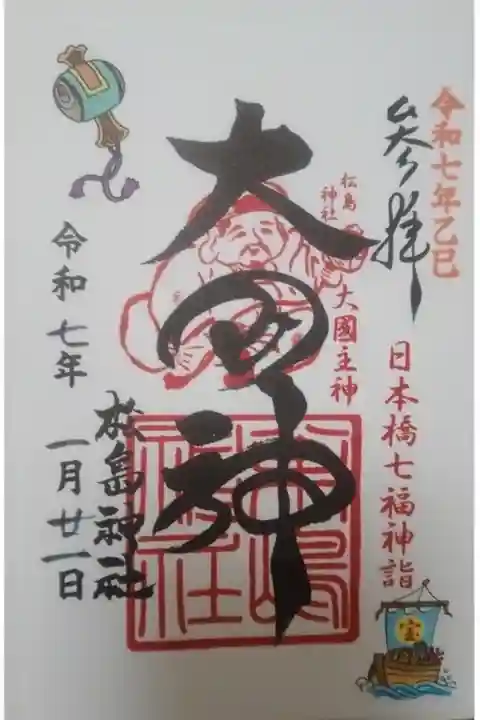 令和七年乙巳
参拝
日本橋七福神詣
宝
松島
神社
大國主神
大国神
松嶋
神社
松島神社
令和七年
一月廿一日